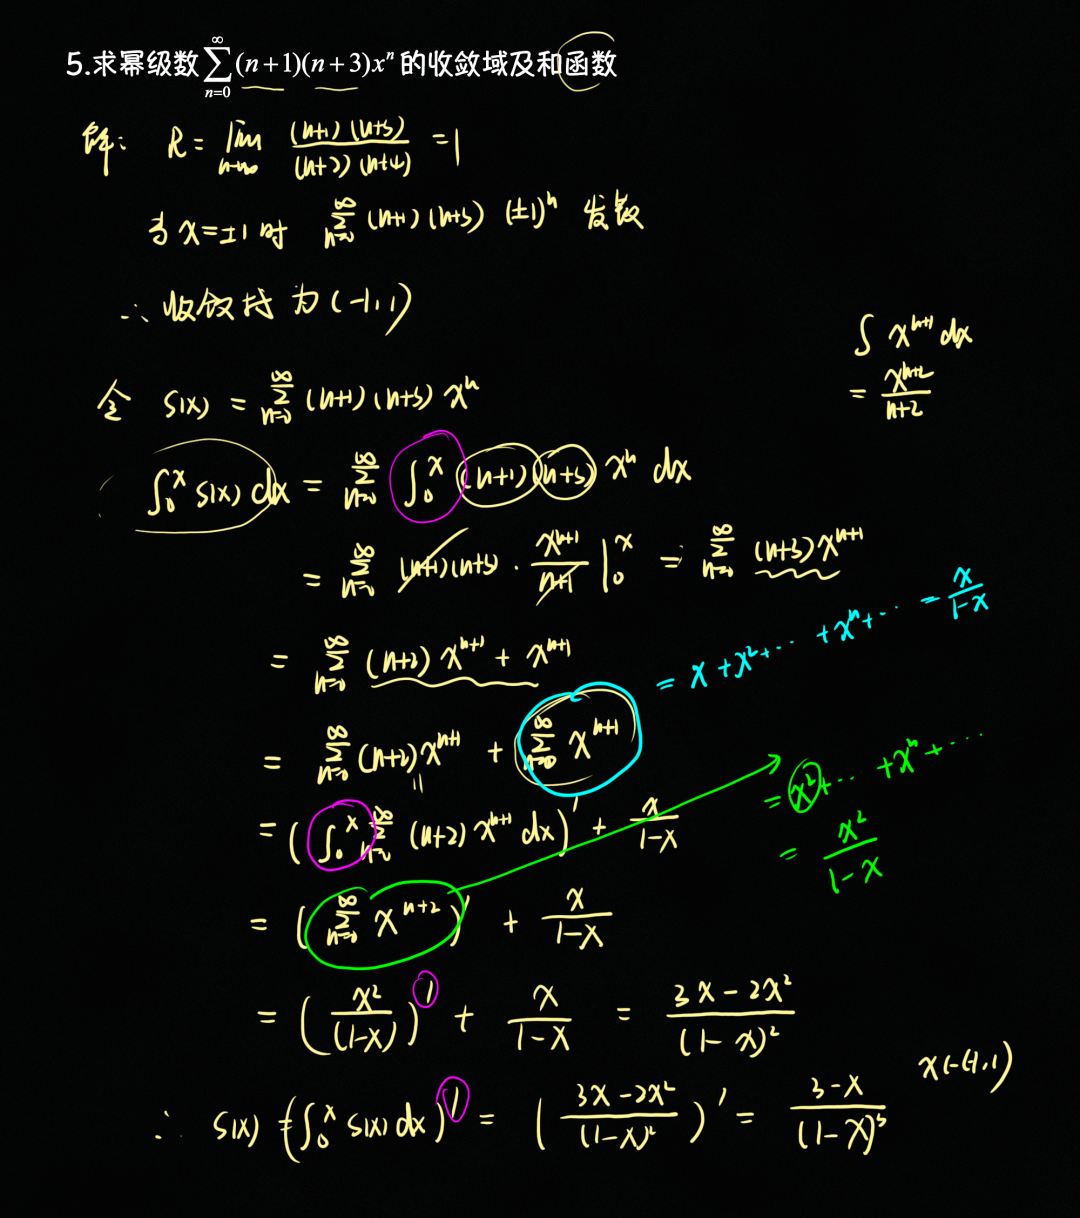 5.求幂级数∑_{n=0}^{∞}(n+1)(n+3)x^n的收敛域及和函数
解: R = lim_{n→∞} (n+1)(n+3)/(n+2)(n+4) = 1
当 x=±1 时 ∑_{n=0}^{∞} (n+1)(n+3) (±1)^n 发散
∴ 收敛域为 (-1,1)
∫ x^{n+1} dx
= x^{n+2}/(n+2)
令 S(x) = ∑_{n=0}^{∞} (n+1)(n+3) x^n
∫_0^x S(x) dx = ∑_{n=0}^{∞} ∫_0^x (n+1)(n+3) x^n dx
= ∑_{n=0}^{∞} (n+1)(n+3) · x^{n+1}/(n+1) |_0^x = ∑_{n=0}^{∞} (n+3)x^{n+1}
= ∑_{n=0}^{∞} (n+2) x^{n+1} + x^{n+1}
= x + x^2 + ··· + x^n + ··· = x/(1-x)
= ∑_{n=0}^{∞} (n+2) x^{n+1} + ∑_{n=0}^{∞} x^{n+1}
= x^2 + ··· + x^n + ···
= x^2/(1-x)
= (∫_0^x ∑_{n=0}^{∞} (n+2) x^{n+1} dx)' + x/(1-x)
= (∑_{n=0}^{∞} x^{n+2})' + x/(1-x)
= (x^2/(1-x))' + x/(1-x) = (3x-2x^2)/(1-x)^2
∴ S(x) = (∫_0^x S(x) dx)' = ((3x-2x^2)/(1-x)^2)' = (3-x)/(1-x)^3 x∈(-1,1)